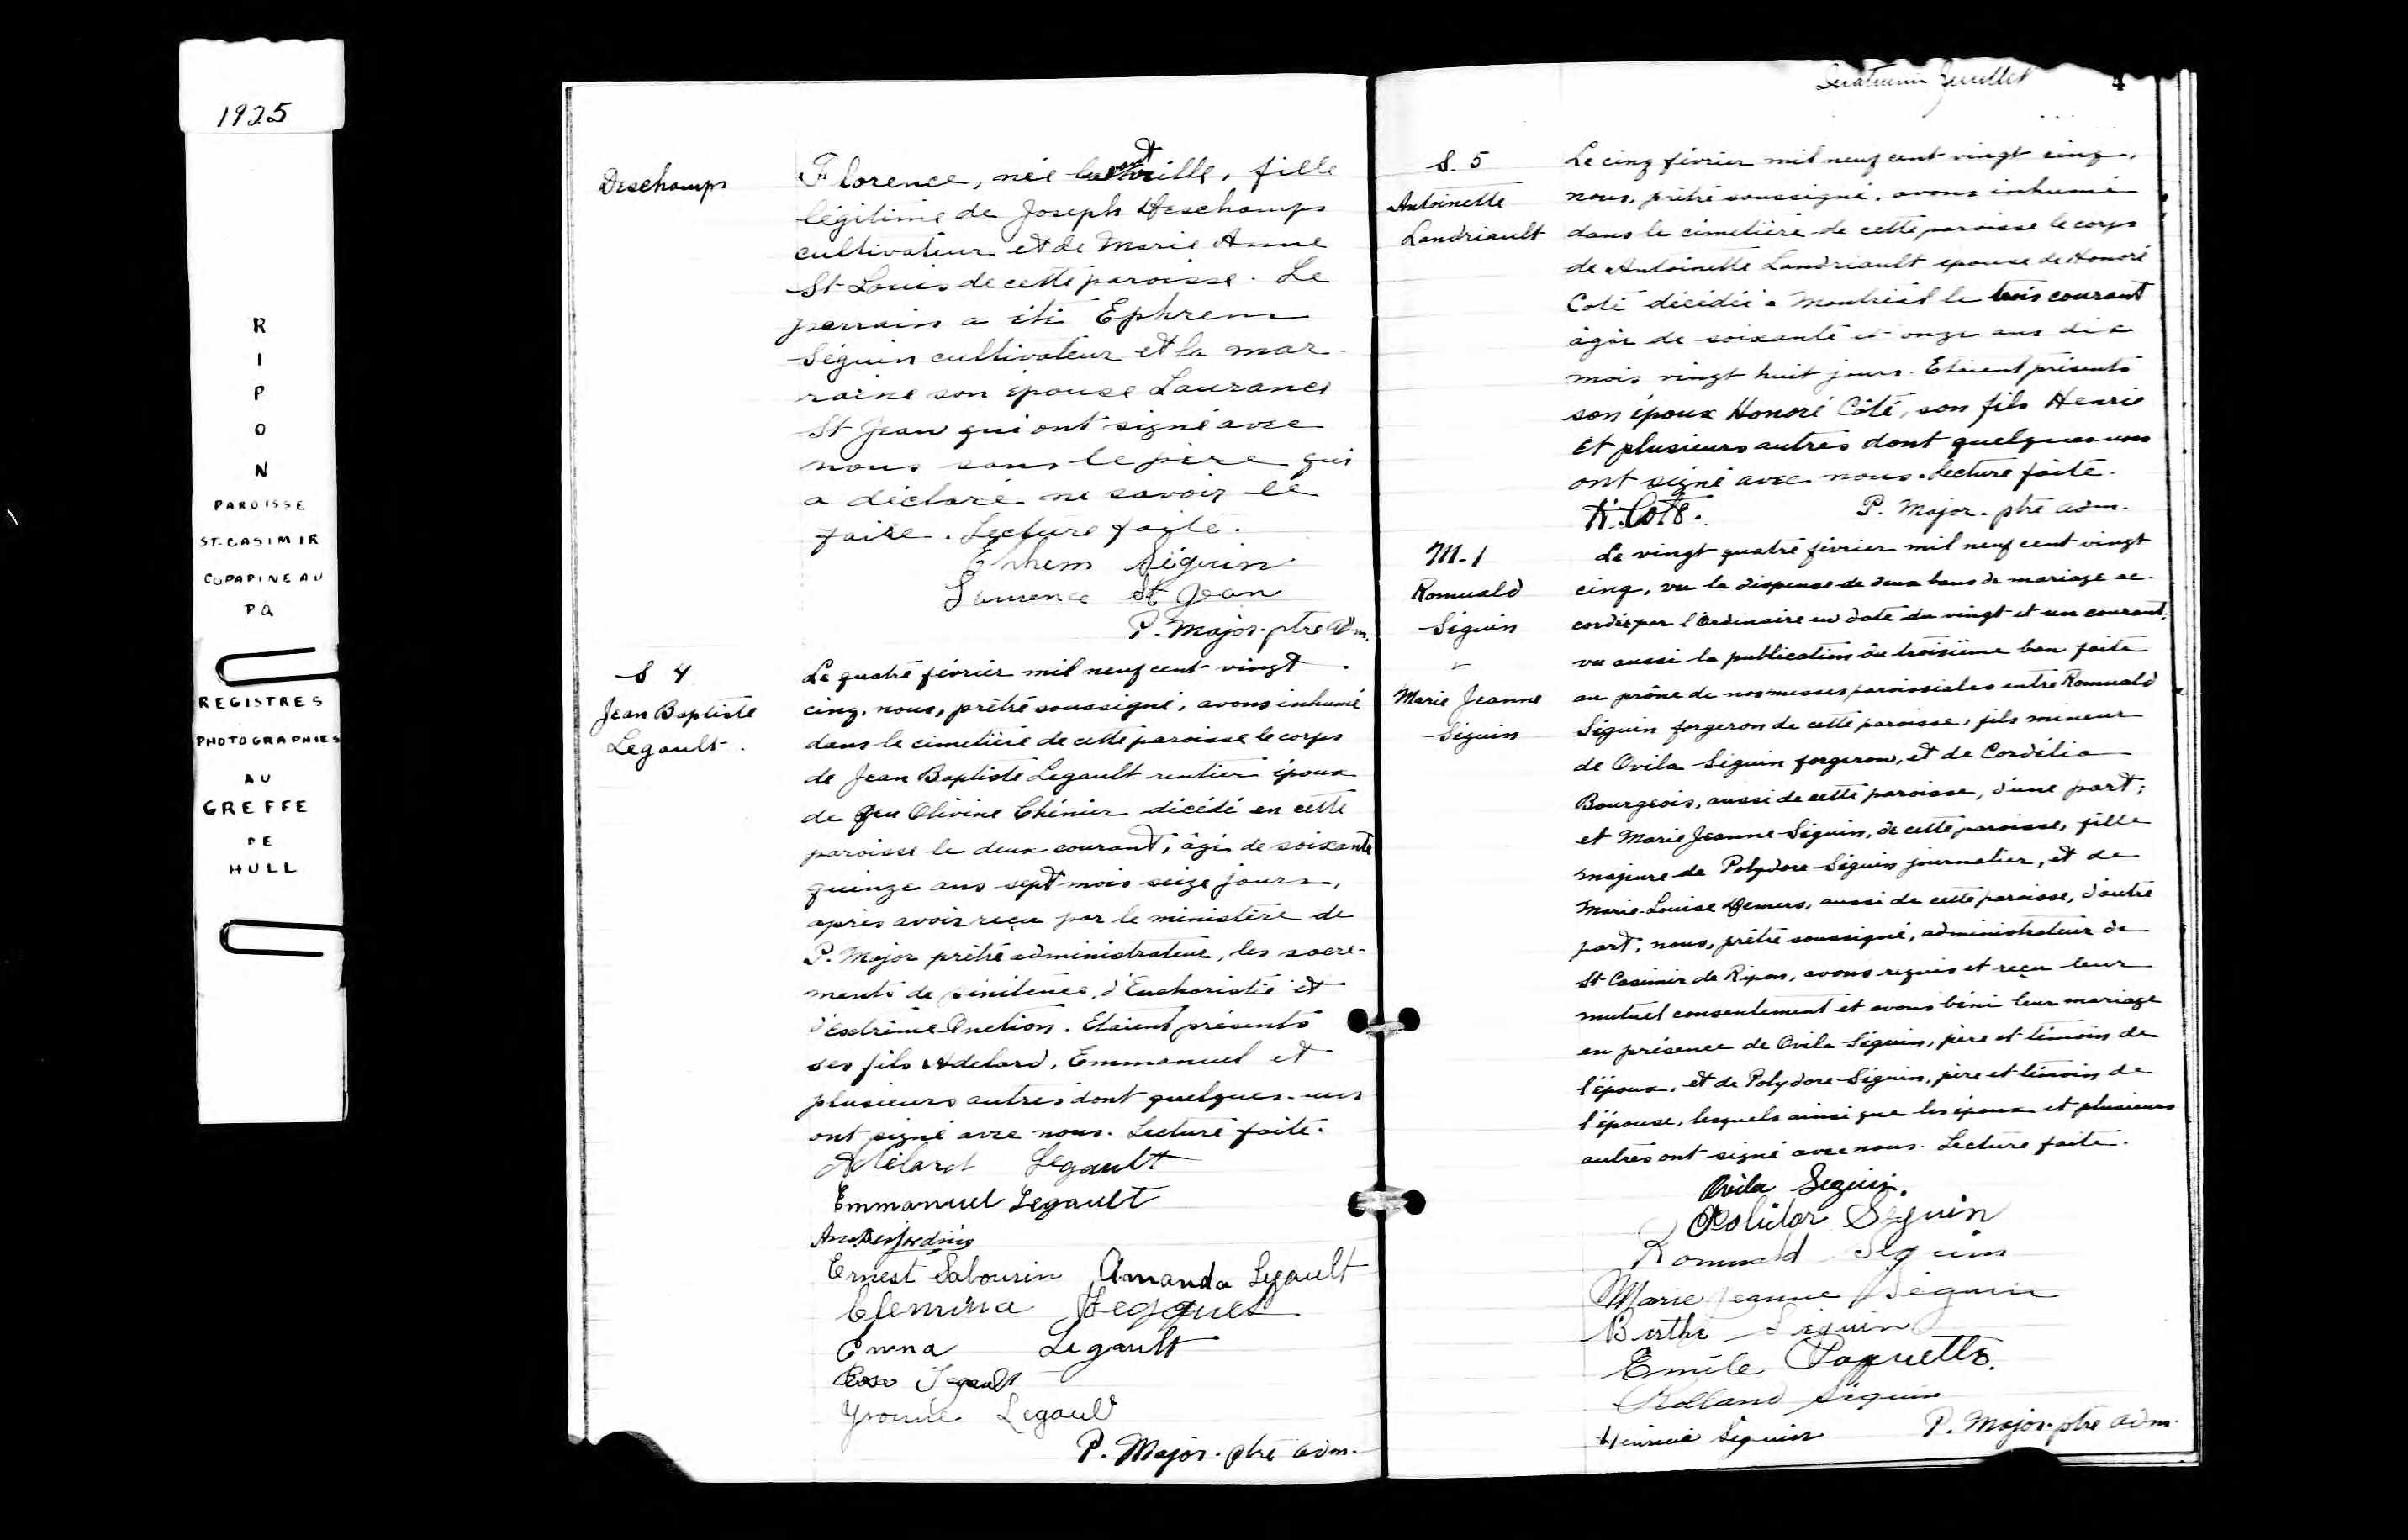 1925
R
I
P
O
N
PAROISSE
ST-CASIMIR
CO PAPINEAU
PQ
REGISTRES
PHOTOGRAPHIES
AU
GREFFE
DE
HULL
Deschamps
Florence, née l'avant veille, fille
légitime de Joseph Deschamps
cultivateur et de Marie Anne
St-Louis de cette paroisse. Le
parrain a été Ephrem
Séguin cultivateur et la mar-
raine son épouse Laurance
St Jean qui ont signé avec
nous sans le père qui
a déclaré ne savoir le
faire. Lecture faite.
Ephrem Séguin
Laurence St Jean
P. Major. ptre adm.
S 4
Jean Baptiste
Legault.
Le quatre février mil neuf cent vingt
cinq, nous, prêtre soussigné, avons inhumé
dans le cimetière de cette paroisse le corps
de Jean Baptiste Legault rentier époux
de feu Olivine Chénier décédé en cette
paroisse le deux courant, âgé de soixante
quinze ans sept mois seize jours,
après avoir reçu par le ministère de
P. Major prêtre administrateur, les sacre-
ments de pénitence, d'Eucharistie et
d'Extrême-Onction. Etaient présents
ses fils Adelard, Emmanuel et
plusieurs autres dont quelques-uns
ont signé avec nous. Lecture faite.
Adélard Légault
Emmanuel Legault
Desjardins
Ernest Sabourin Amanda Legault
Clemina
Emma Legault
Rose Legault
Yvonne Legault
P. Major. ptre adm.
Feuillet 4
S. 5
Antoinette
Landriault
Le cinq février mil neuf cent vingt cinq,
nous, prêtre soussigné, avons inhumé
dans le cimetière de cette paroisse le corps
de Antoinette Landriault epouse de Honoré
Coté décédée a Montréal le trois courant
âgée de soixante et onze ans dix
mois vingt huit jours. Etaient présents
son époux Honoré Côté, son fils Henrie
et plusieurs autres dont quelques-uns
ont signé avec nous. Lecture faite.
H. Coté. P. Major. ptre adm.
M-1
Romuald
Séguin
&
Marie Jeanne
Séguin
Le vingt quatre février mil neuf cent vingt
cinq, vu la dispense de deux bans de mariage ac-
cordée par l'Ordinaire en date du vingt et un courant;
vu aussi la publication du troisième ban faite
au prône de nos messes paroissiales entre Romuald
Séguin forgeron de cette paroisse, fils mineur
de Ovila Séguin forgeron, et de Cordélia
Bourgeois, aussi de cette paroisse, d'une part;
et Marie Jeanne Séguin, de cette paroisse, fille
majeure de Polydore Séguin journalier, et de
Marie-Louise Demers, aussi de cette paroisse, d'autre
part; nous, prêtre soussigné, administrateur de
St Casimir de Ripon, avons requis et reçu leur
mutuel consentement et avons béni leur mariage
en présence de Ovila Séguin, père et témoin de
l'époux, et de Polydore Séguin, père et témoin de
l'épouse, lesquels ainsi que les époux et plusieurs
autres ont signé avec nous. Lecture faite.
Ovila Seguin.
Polidor Séguin
Romuald Séguin
Marie Jeanne Séguin
Berthe Séguin
Emile Paquette.
Rolland Séguin
Séguin P. Major. ptre adm.